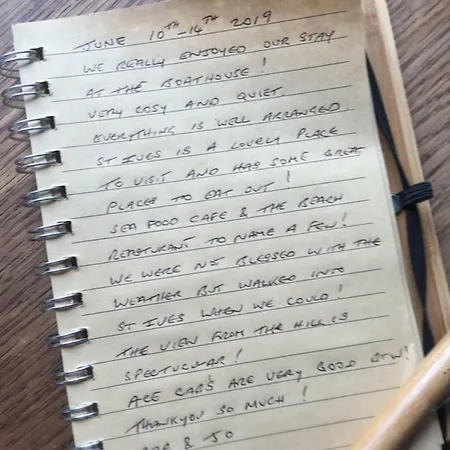 JUNE 10TH-14TH 2019
WE REALLY ENJOYED OUR STAY
AT THE BOATHOUSE!
VERY COSY AND QUIET.
EVERYTHING IS WELL ARRANGED.
ST IVES IS A LOVELY PLACE
TO VISIT AND HAS SOME GREAT
PLACES TO EAT OUT!
SEA FOOD CAFE & THE BEACH
REASTURANT TO NAME A FEW!
WE WERE NOT BLESSED WITH THE
WEATHER BUT WALKED INTO
ST IVES WHEN WE COULD!
THE VIEW FROM THE HILL IS
SPECTUCULAR!
ACE CABS ARE VERY GOOD BTW!
THANKYOU SO MUCH!
& JO